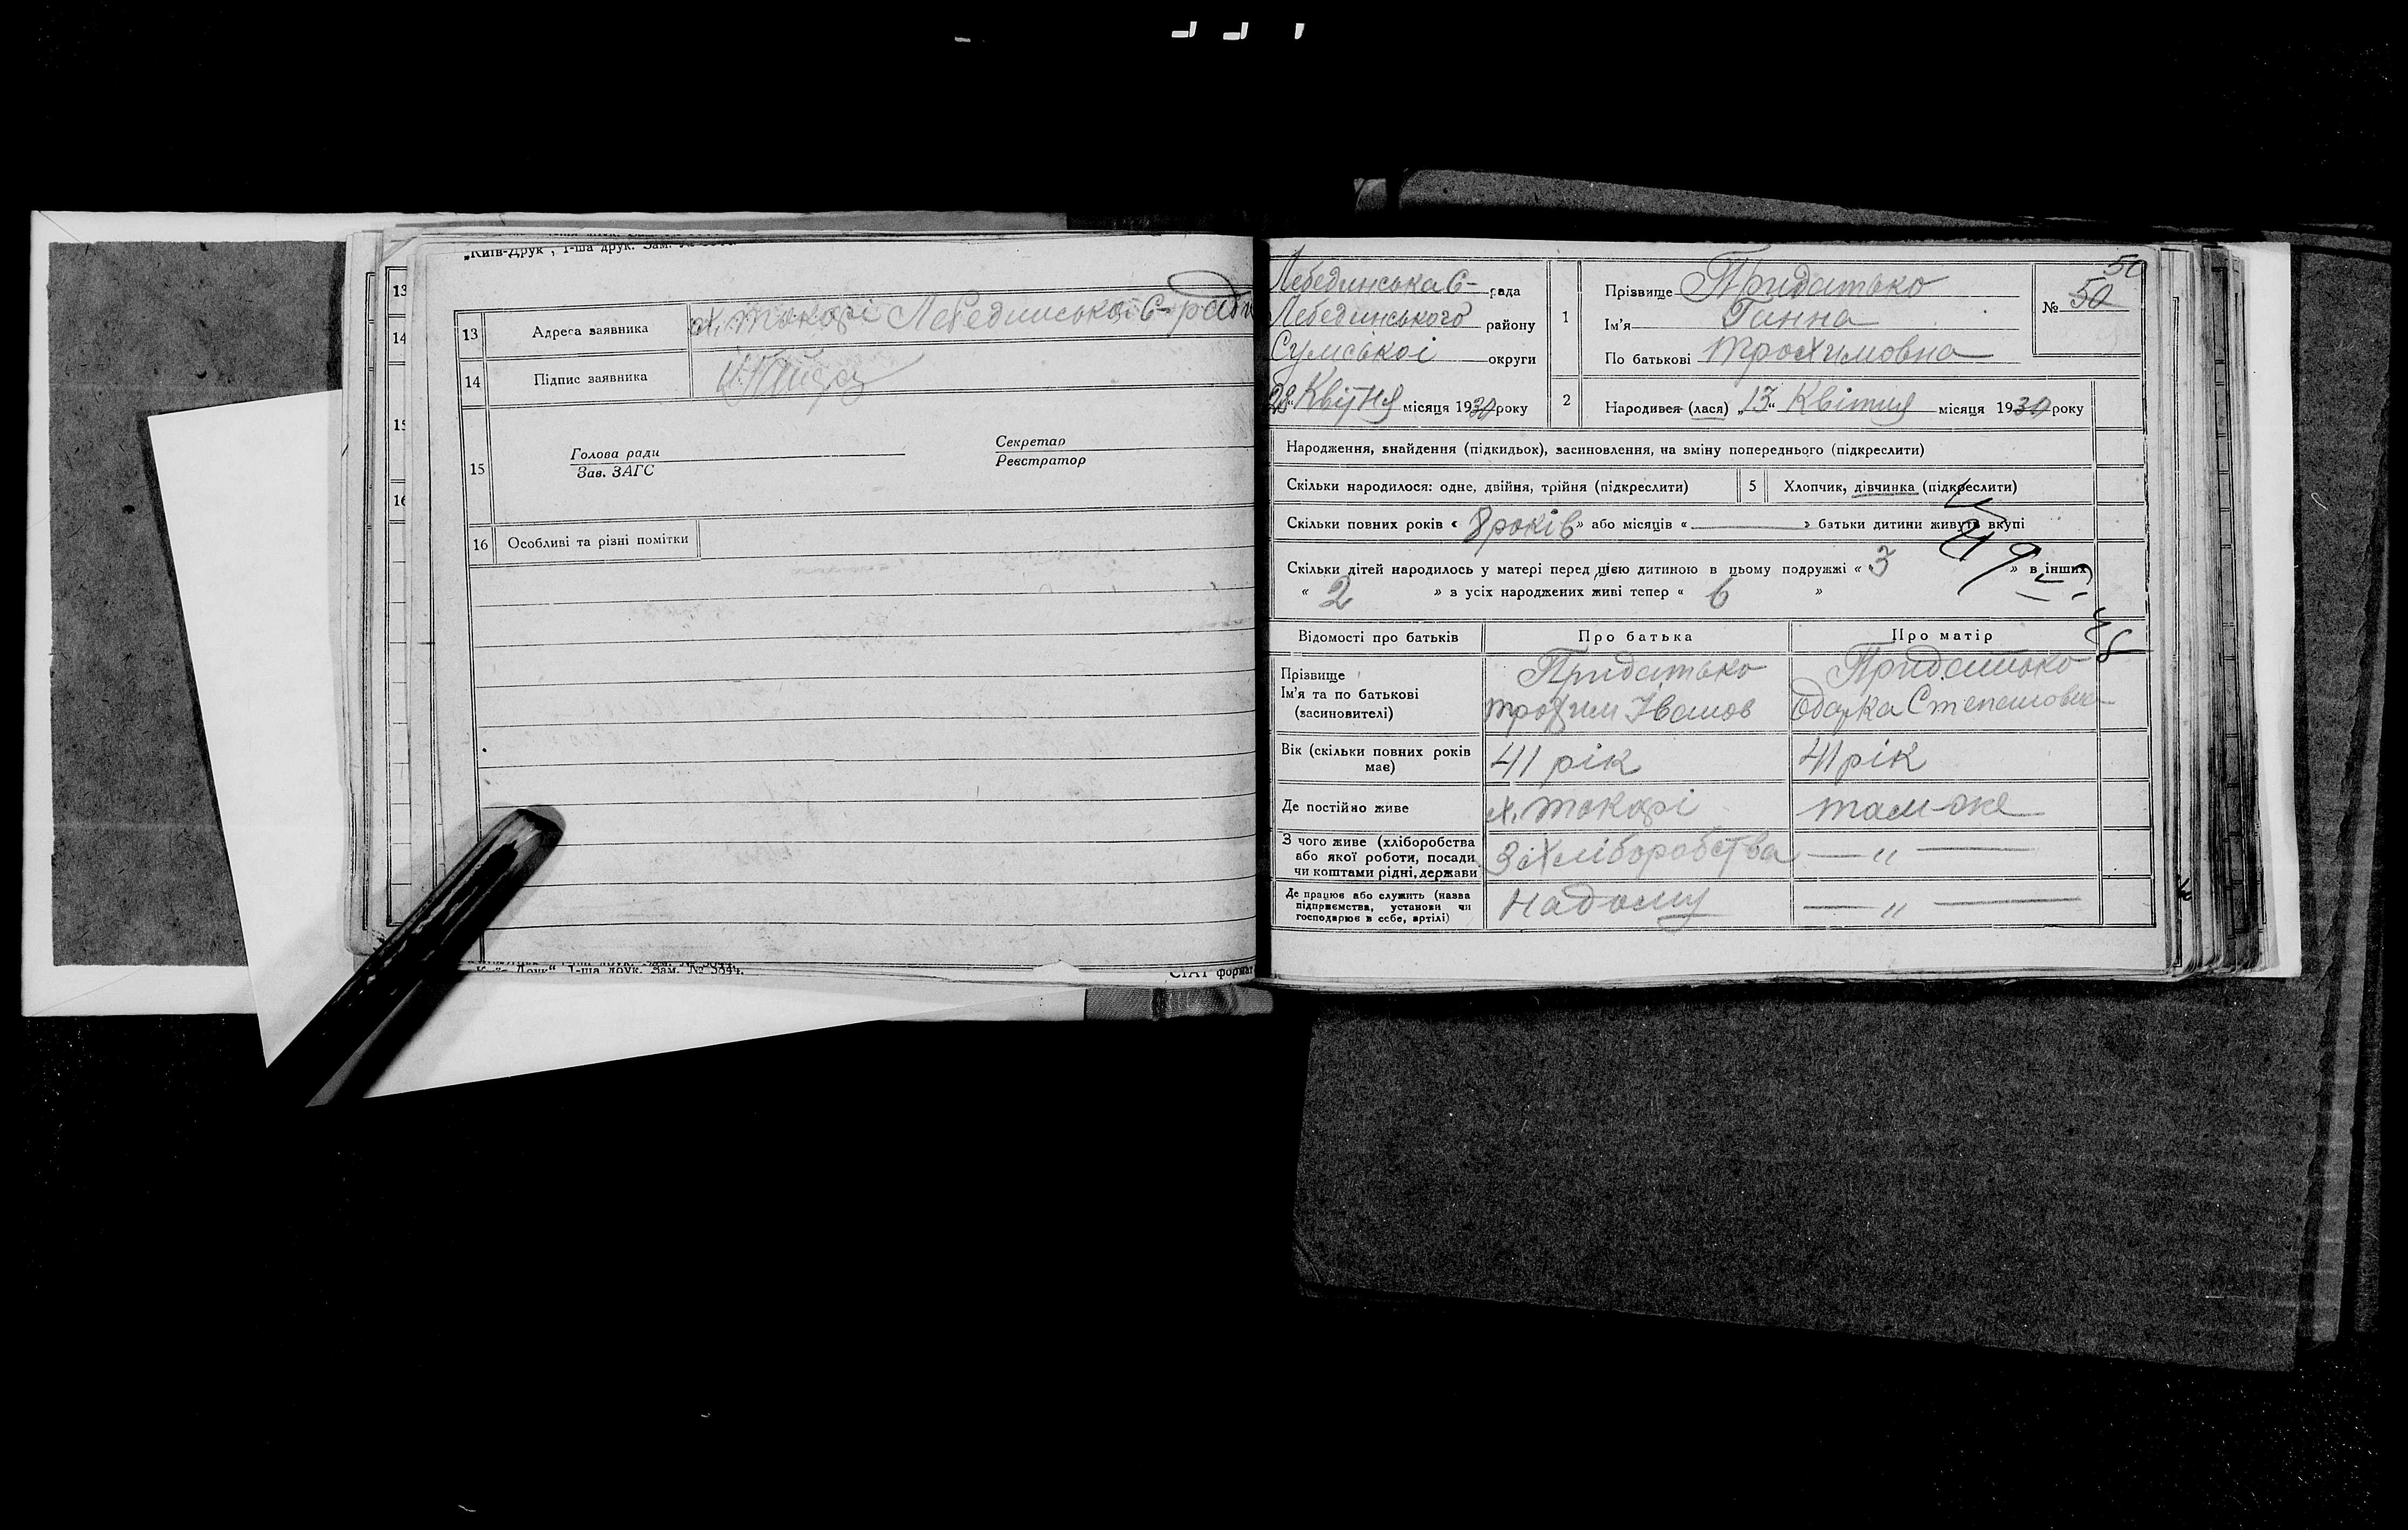 „Київ-Друк", 1-ша друк. Зам. №
13
14
15
16
13 Адреса заявника х. Токарі Лебединської С-ради
14 Підпис заявника
15 Голова ради
Зав. ЗАГС
Секретар
Реєстратор
16 Особливі та різні помітки
1-ша друк. Зам. № 5844.
формат
Лебединська С- рада
Лебединського району
Сумської округи
28 Квітня місяця 1930 року
1 Прізвище Придатько
Ім'я Ганна
По батькові Трохимовна
50
№ 50
2 Народився (лася) „13" Квітня місяця 1930 року
Народження, знайдення (підкидьок), засиновлення, на зміну попереднього (підкреслити)
Скільки народилося: одне, двійня, трійня (підкреслити) 5 Хлопчик, дівчинка (підкреслити)
Скільки повних років « 8 років » або місяців « — » батьки дитини живуть вкупі
Скільки дітей народилось у матері перед цією дитиною в цьому подружжі « 3 » в інших
« 2 » з усіх народжених живі тепер « 6 »
Відомості про батьків Про батька Про матір
Прізвище Придатько Придатько
Ім'я та по батькові Трохим Іванов Одарка Степановна
(засиновителі)
Вік (скільки повних років має) 41 рік 41 рік
Де постійно живе х. Токарі там-же
З чого живе (хліборобства
або якої роботи, посади
чи коштами рідні, держави За Хліборобства — „ —
Де працює або служить (назва
підприємства, установи чи
господарює в себе, артілі) На дому — „ —